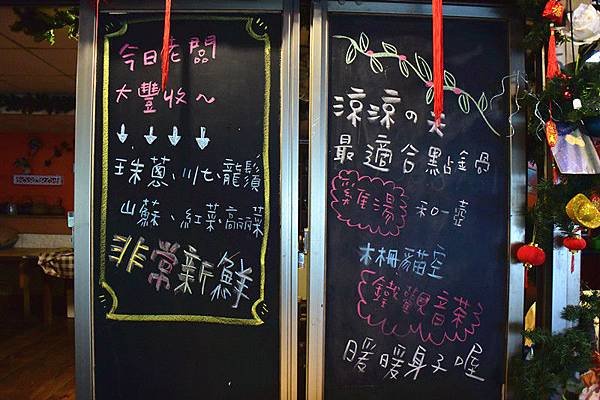 今日老闆
大豐收～
↓ ↓ ↓ ↓
珠蔥、川七、龍鬚
山蘇、紅菜、高麗菜
非常新鮮
涼涼の天
最適合點鍋
雞湯 和一壺
木柵貓空
鐵觀音茶
暖暖身子喔